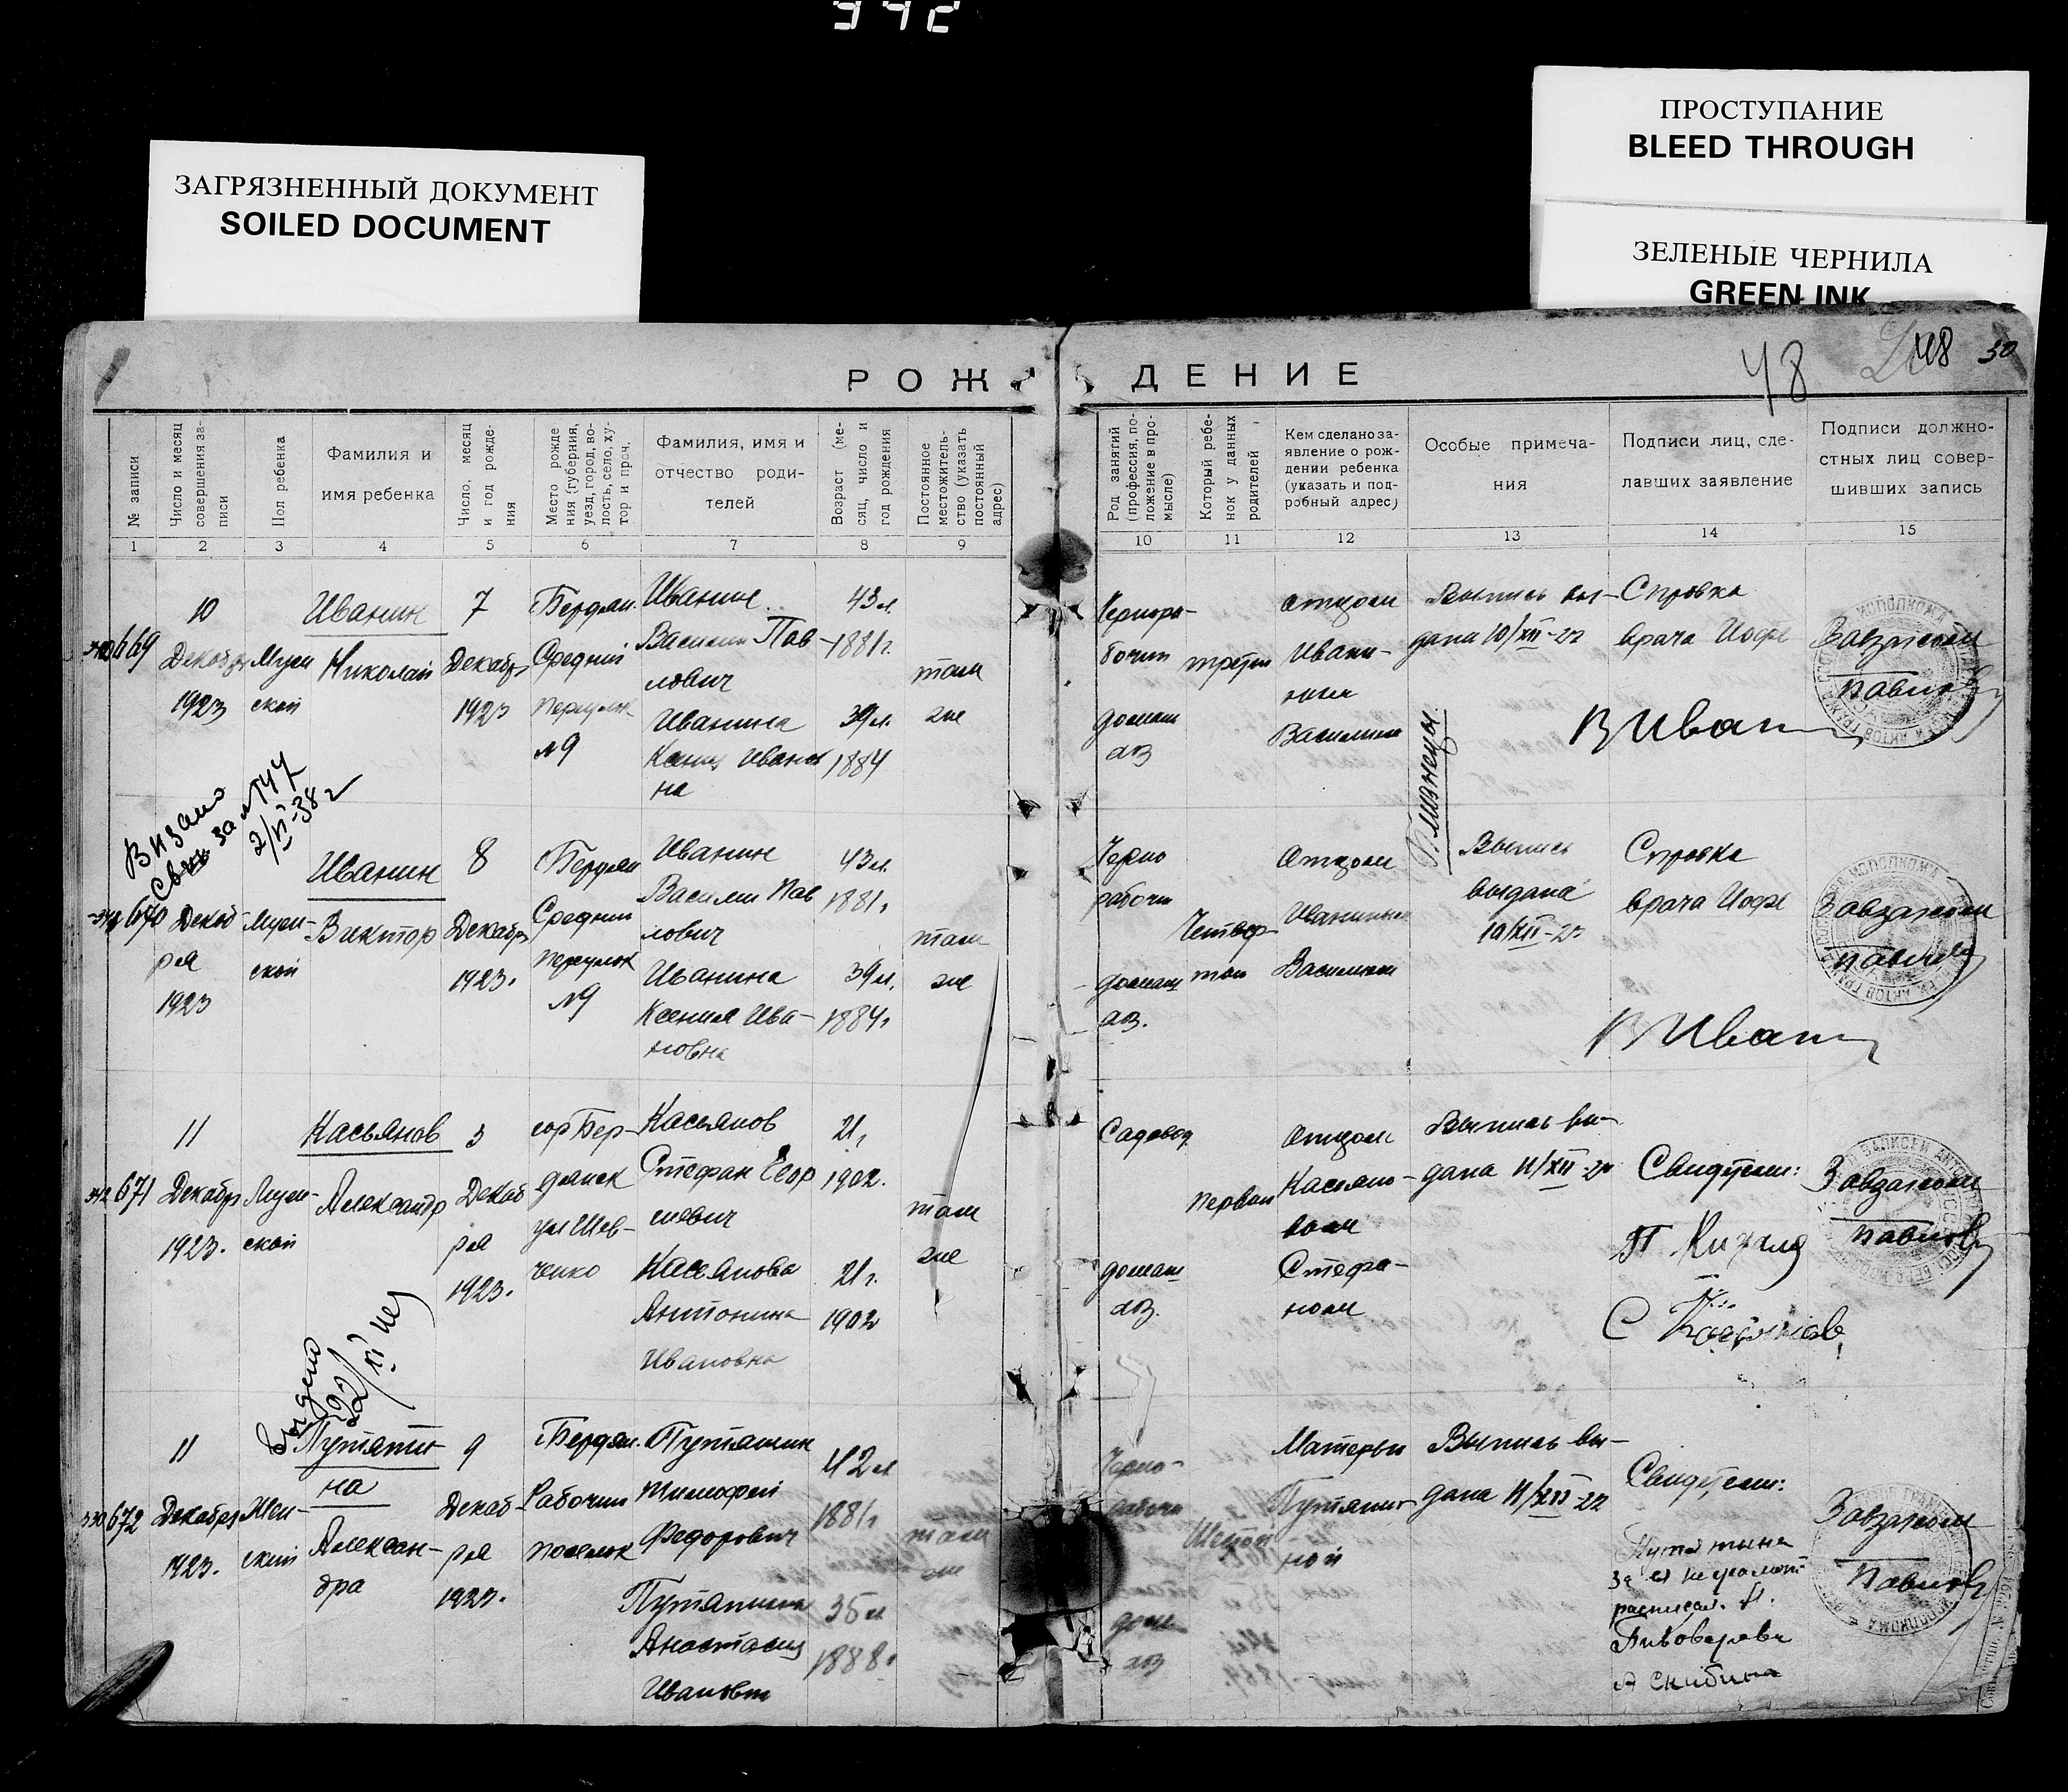 392
ПРОСТУПАНИЕ
BLEED THROUGH
ЗАГРЯЗНЕННЫЙ ДОКУМЕНТ
SOILED DOCUMENT
ЗЕЛЕНЫЕ ЧЕРНИЛА
GREEN INK
48 48 50
РОЖДЕНИЕ
№ записи
Число и месяц совершения записи
Пол ребенка
Фамилия и
имя ребенка
Число, месяц и год рождения
Место рожде
ния (губерния,
уезд, город, во-
лость, село, ху-
тор и проч.
Фамилия, имя и
отчество роди-
телей
Возраст (ме-
сяц, число и
год рождения
Постоянное
местожитель-
ство (указать
постоянный
адрес)
Род занятий
(профессия, по-
ложение в про-
мысле)
Который ребе-
нок у данных
родителей
Кем сделано за-
явление о рож-
дении ребенка
(указать и под-
робный адрес)
Особые примеча-
ния
Подписи лиц, сде-
лавших заявление
Подписи должно-
стных лиц совер-
шивших запись
1 2 3 4 5 6 7 8 9 10 11 12 13 14 15
669
10
Декабр
1923
Муж
ской
Иванин
Николай
7
Декабр
1923
Бердян.
Средний
переулок
№9
Иванин
Василий Пав-
лович
Иванина
Иванов
на
43 л.
1881 г.
39 л.
1884
там
же
Чернора-
бочий
домаш
хоз
третий
отцом
Ивани-
ным
Василием
Выпись вы-
дана 10/XII-23
Близнецы.
Справка
врача Иофе
В Иван
Завзагсом
Павлов
670
Декаб
ря
1923
Муж-
ской
Иванин
Виктор
8
Декабр
1923.
Бердян
Средний
переулок
№9
Иванин
Василий Пав
лович
Иванина
Ксения Ива-
новна
43 л.
1881 г.
39 л.
1884 г.
там
же
Черно
рабочий
домаш
хоз.
Четвер-
тый
отцом
Иваниным
Василием
Выпись
выдана
10/XII-23
Справка
врача Иофе
В Иван
Завзагсом
Павлов
671
11
Декабр
1923.
Муж-
ской
Касьянов
Александр
3
Декаб
ря
1923.
гор Бер-
дянск
ул Шев-
ченко
Касьянов
Стефан Егор
иевич
Касьянова
Антонина
Ивановна
21 г.
1902.
21 г.
1902
там
же
Садовод
домаш
хоз.
Первый
отцом
Касьяно-
вым
Стефа-
ном
Выпись вы-
дана 11/XII-23
Свидетели:
С Касьянов
Завзагсом
Павлов
672
11
Декабр
1923.
Жен-
ский
Путяти-
на
Алексан-
дра
9
Декаб-
ря
1923.
Бердян.
Рабочий
поселок
Путятин
Тимофей
Федорович
Путятина
Анастасия
Ивановн
42 л
1881 г
35 л
1888 г
там
же
Черно-
рабочий
домаш
хоз
Шестой
Матерью
Путяти-
ной
Выпись вы-
дана 11/XII-23
Свидетели:
Путятина
за ея неграмот
расписал. А.
Пивоварова
А Скибина
Завзагсом
Павлов